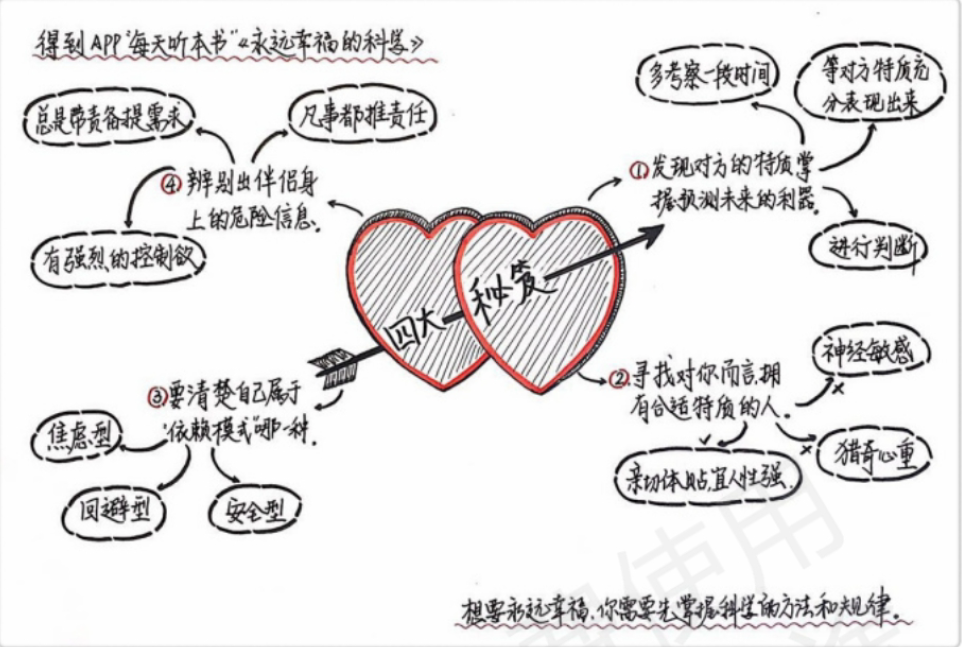 得到APP“每天听本书”《永远幸福的科学》
四大秘笈
①发现对方的特质掌
握预测未来的利器。
多考察一段时间
等对方特质充
分表现出来
进行判断
②寻找对你而言,拥
有合适特质的人。
神经敏感
猎奇心重
亲切体贴,宜人性强.
③要清楚自己属于
“依赖模式”哪一种.
焦虑型
回避型
安全型
④辨别出伴侣身
上的危险信息.
总是带责备提需求
凡事都推责任
有强烈的控制欲
想要永远幸福,你需要先掌握科学的方法和规律。
使用